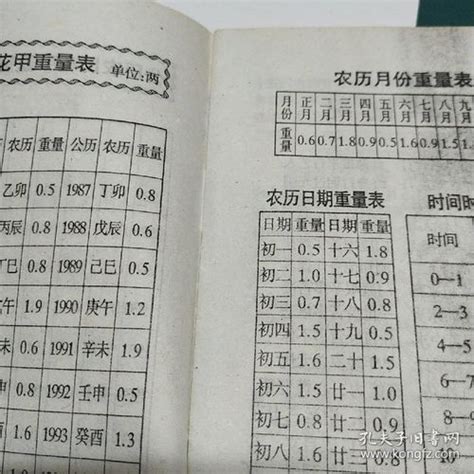 花甲重量表
单位:两
农历 重量 公历 农历 重量
乙卯 0.5 1987 丁卯 0.8
丙辰 0.8 1988 戊辰 0.6
丁巳 0.8 1989 己巳 0.5
午 1.9 1990 庚午 1.2
未 0.6 1991 辛未 1.9
申 0.8 1992 壬申 0.5
酉 1.6 1993 癸酉 1.3
农历月份重量表
月份 正月 二月 三月 四月 五月 六月 七月 八月 九
重量 0.6 0.7 1.8 0.9 0.5 1.6 0.9 1.5 1.
农历日期重量表
日期 重量 日期 重量
初一 0.5 十六 1.8
初二 1.0 十七 0.9
初三 0.7 十八 0.8
初四 1.5 十九 0.5
初五 1.6 二十 1.5
初六 1.5 廿一 1.0
初七 0.8 廿二 0.9
初八 1.6
时间时
时间
0—1
2—3
4—5
6—7
8—9
10
孔夫子旧书网
www.kongfz.com